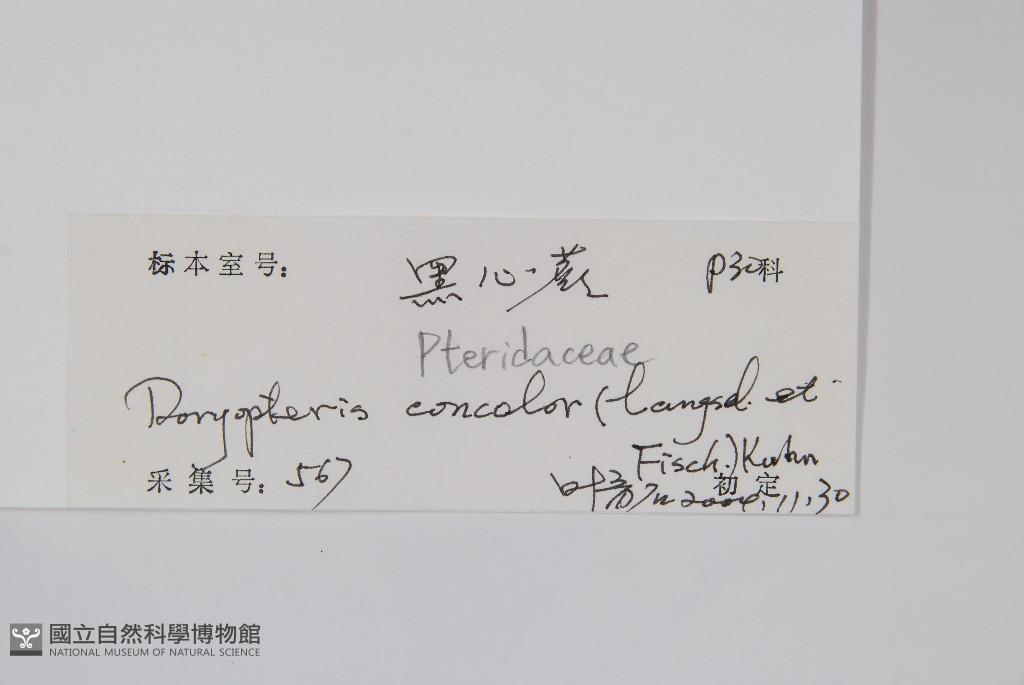 标本室号: 黑心蕨 P30科
Pteridaceae
Doryopteris concolor (Langsd. et
Fisch.) Kuhn
采集号: 567
叶 初定 2004.11.30
國立自然科學博物館
NATIONAL MUSEUM OF NATURAL SCIENCE